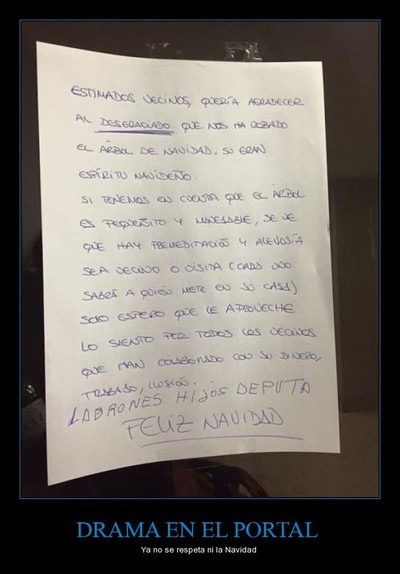 ESTIMADOS VECINOS, QUERÍA AGRADECER
AL DESGRACIADO QUE NOS HA ROBADO
EL ÁRBOL DE NAVIDAD, SU GRAN
ESPÍRITU NAVIDEÑO.
SI TENEMOS EN CUENTA QUE EL ÁRBOL
ES PEQUEÑITO Y MANEJABLE, SE VE
QUE HAY PREMEDITACIÓN Y ALEVOSÍA
SEA VECINO O VISITA (CADA UNO
SABRÁ A QUIÉN METE EN SU CASA)
SOLO ESPERO QUE LE APROVECHE
LO SIENTO POR TODOS LOS VECINOS
QUE HAN COLABORADO CON SU DINERO,
TRABAJO, ILUSIÓN.
LADRONES HIJOS DEPUTA
FELIZ NAVIDAD
DRAMA EN EL PORTAL
Ya no se respeta ni la Navidad